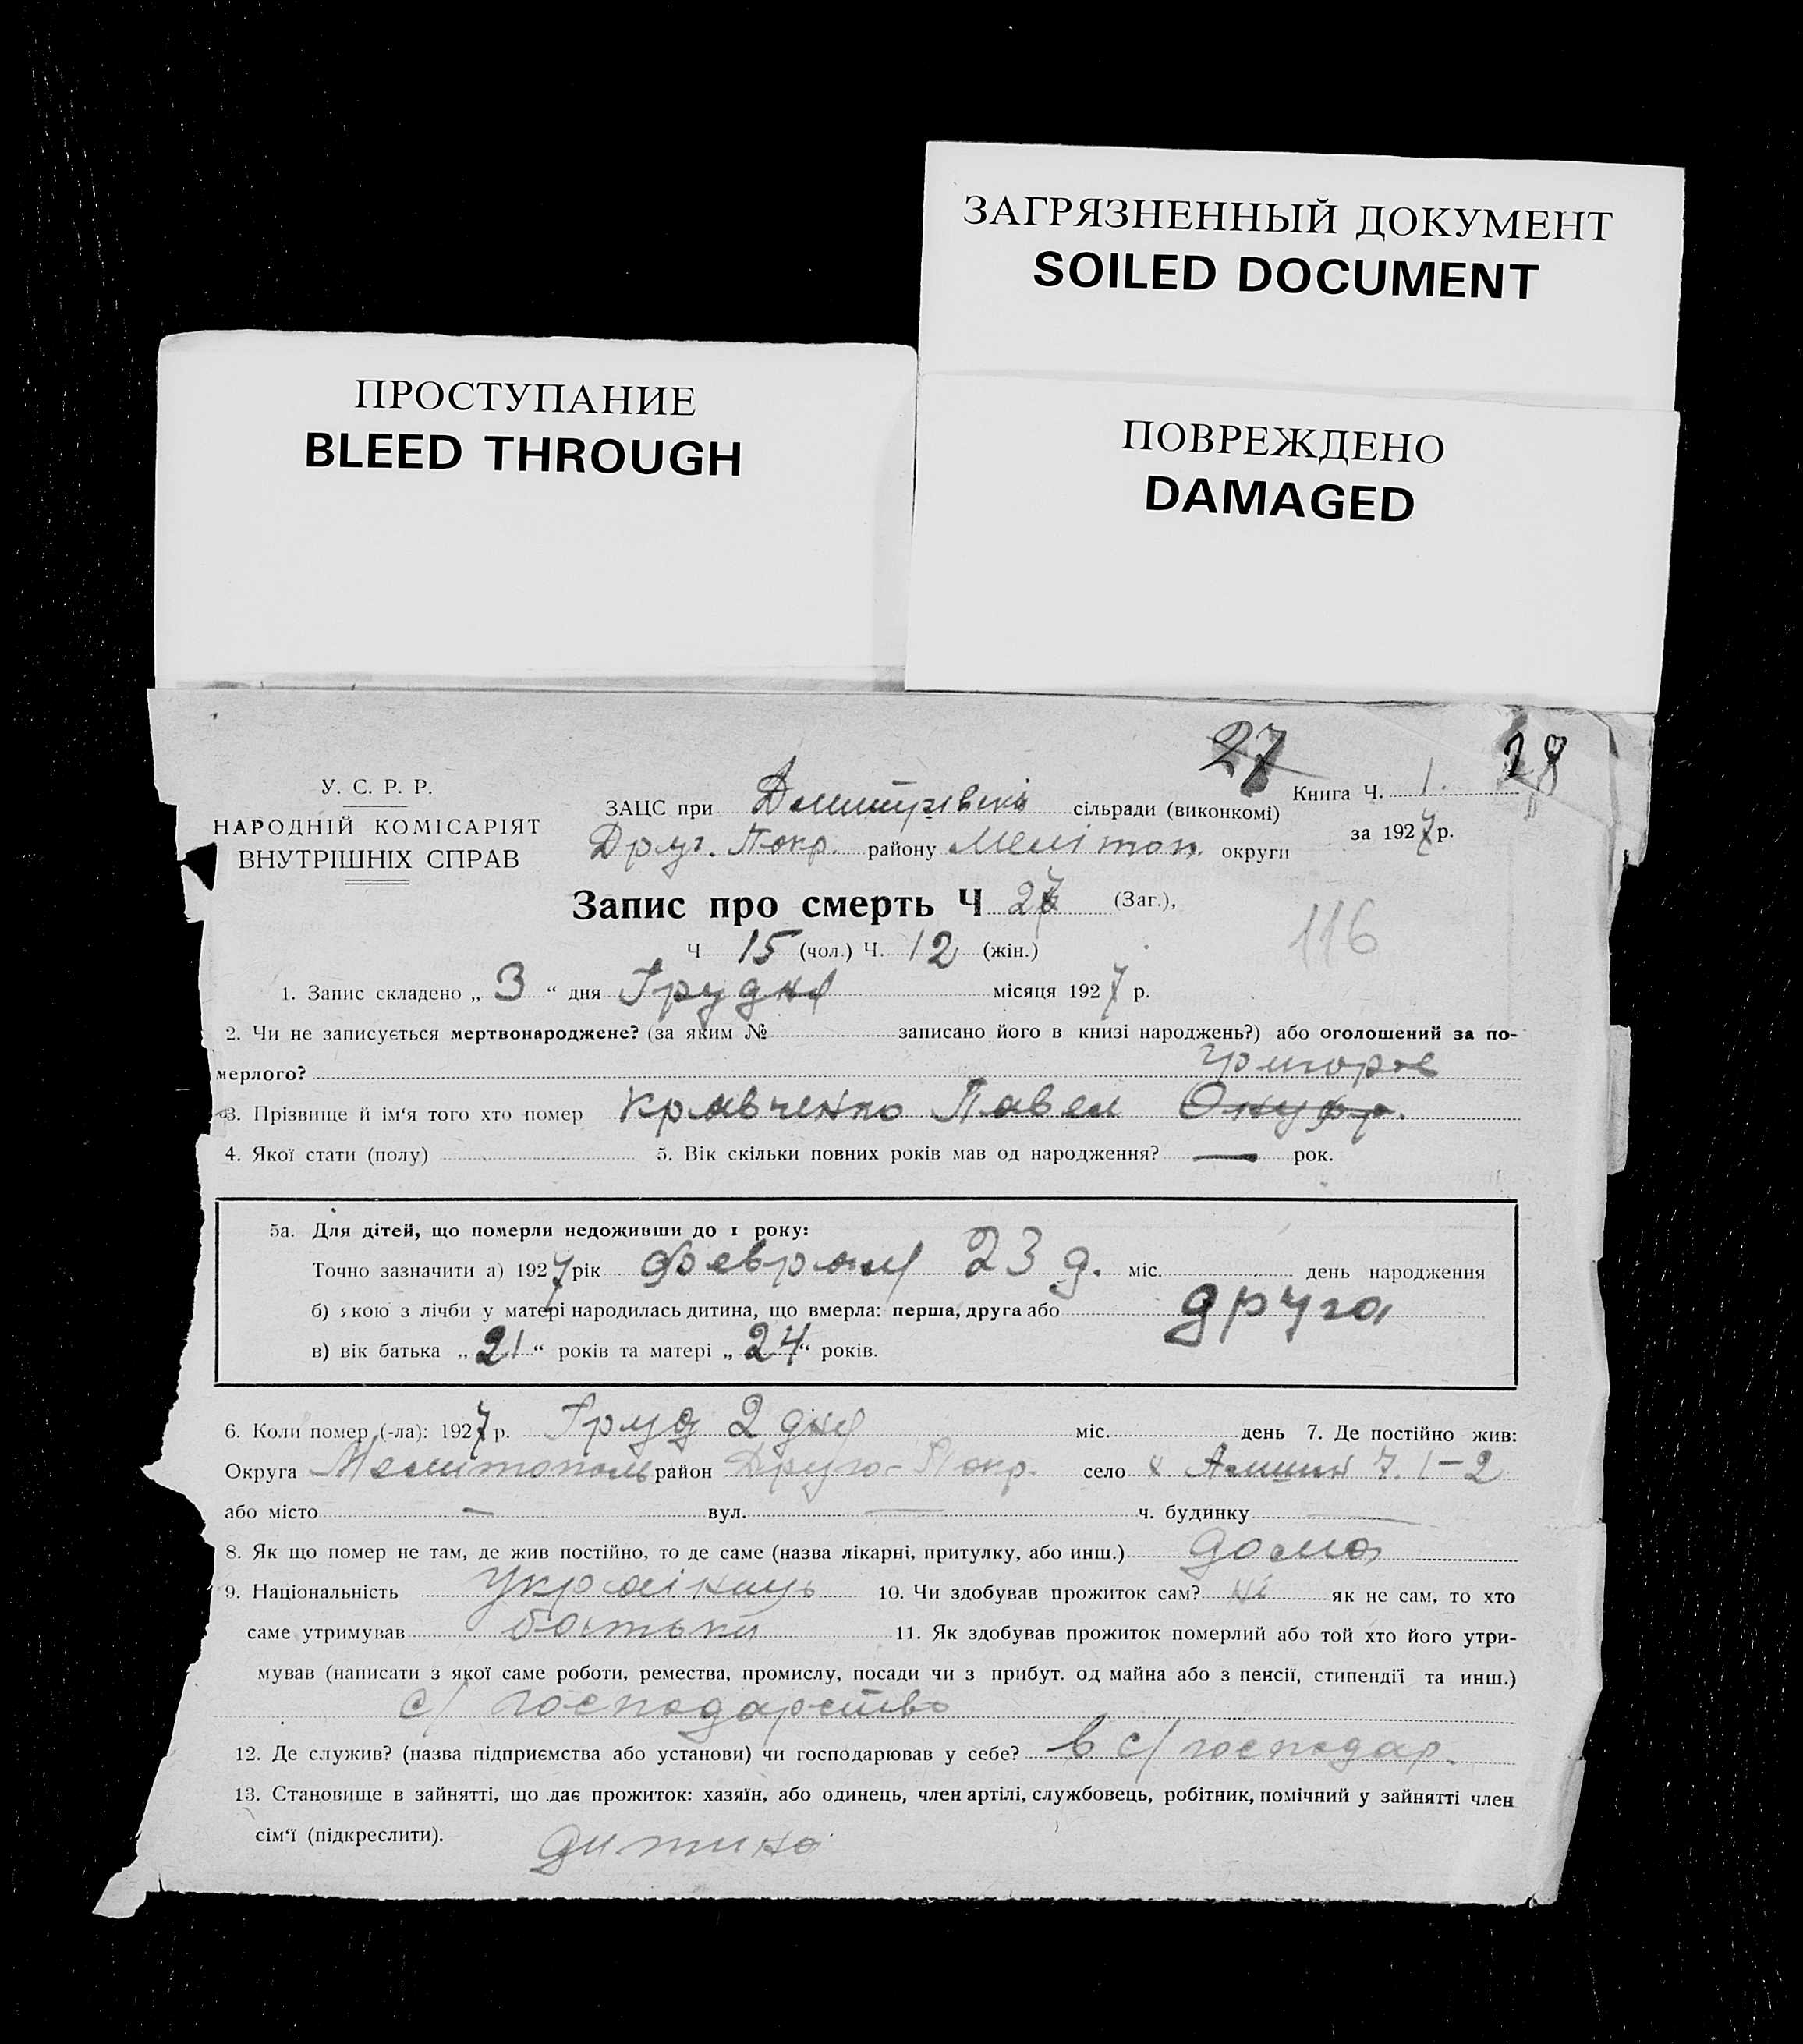 ЗАГРЯЗНЕННЫЙ ДОКУМЕНТ
SOILED DOCUMENT
ПРОСТУПАНИЕ
BLEED THROUGH
ПОВРЕЖДЕНО
DAMAGED
27 28
У. С. Р. Р.
НАРОДНІЙ КОМІСАРІЯТ
ВНУТРІШНІХ СПРАВ
Книга Ч. 1.
ЗАЦС при сільради (виконкомі)
за 1927 р.
Друг. Покр. району Мелітоп. округи
Запис про смерть Ч 27 (Заг.),
116
Ч 15 (чол.) Ч. 12 (жін.)
1. Запис складено „ 3 “ дня Грудня місяця 1927 р.
2. Чи не записується мертвонароджене? (за яким № записано його в книзі народжень?) або оголошений за по-
мерлого?
григоров
3. Прізвище й ім‘я того хто помер Кравченко Павел Онуфр.
4. Якої стати (полу) 5. Вік скільки повних років мав од народження? — рок.
5а. Для дітей, що померли недоживши до 1 року:
Точно зазначити а) 1927 рік Февраля 23 д. міс. день народження
б) якою з лічби у матері народилась дитина, що вмерла: перша, друга або друга
в) вік батька „ 21 “ років та матері „ 24 “ років.
6. Коли помер (-ла): 1927 р. Груд 2 дня міс. день 7. Де постійно жив:
Округа Мелитополь район Друго-Покр. село 7. 1–2
або місто — вул. — ч. будинку —
8. Як що помер не там, де жив постійно, то де саме (назва лікарні, притулку, або инш.) дома
9. Національність Українець 10. Чи здобував прожиток сам? ні як не сам, то хто
саме утримував батьки 11. Як здобував прожиток померлий або той хто його утри-
мував (написати з якої саме роботи, ремества, промислу, посади чи з прибут. од майна або з пенсії, стипендії та инш.)
с/господарство
12. Де служив? (назва підприємства або установи) чи господарював у себе? в с/господар.
13. Становище в зайнятті, що дає прожиток: хазяїн, або одинець, член артілі, службовець, робітник, помічний у зайнятті член
сім‘ї (підкреслити). дитина